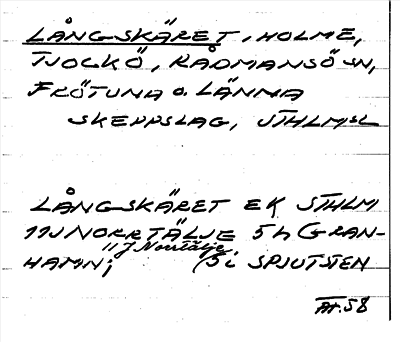 LÅNGSKÄRET, HOLME,
TJOCKÖ, RÅDMANSÖ SN,
FRÖTUNA O. LÄNNA
SKEPPSLAG, STHLMSL
LÅNGSKÄRET EK STHLM
11J NORRTÄLJE 5h GRAN-
11 J Norrtälje
HAMN; (5i SPJUTSTEN
AT. 58